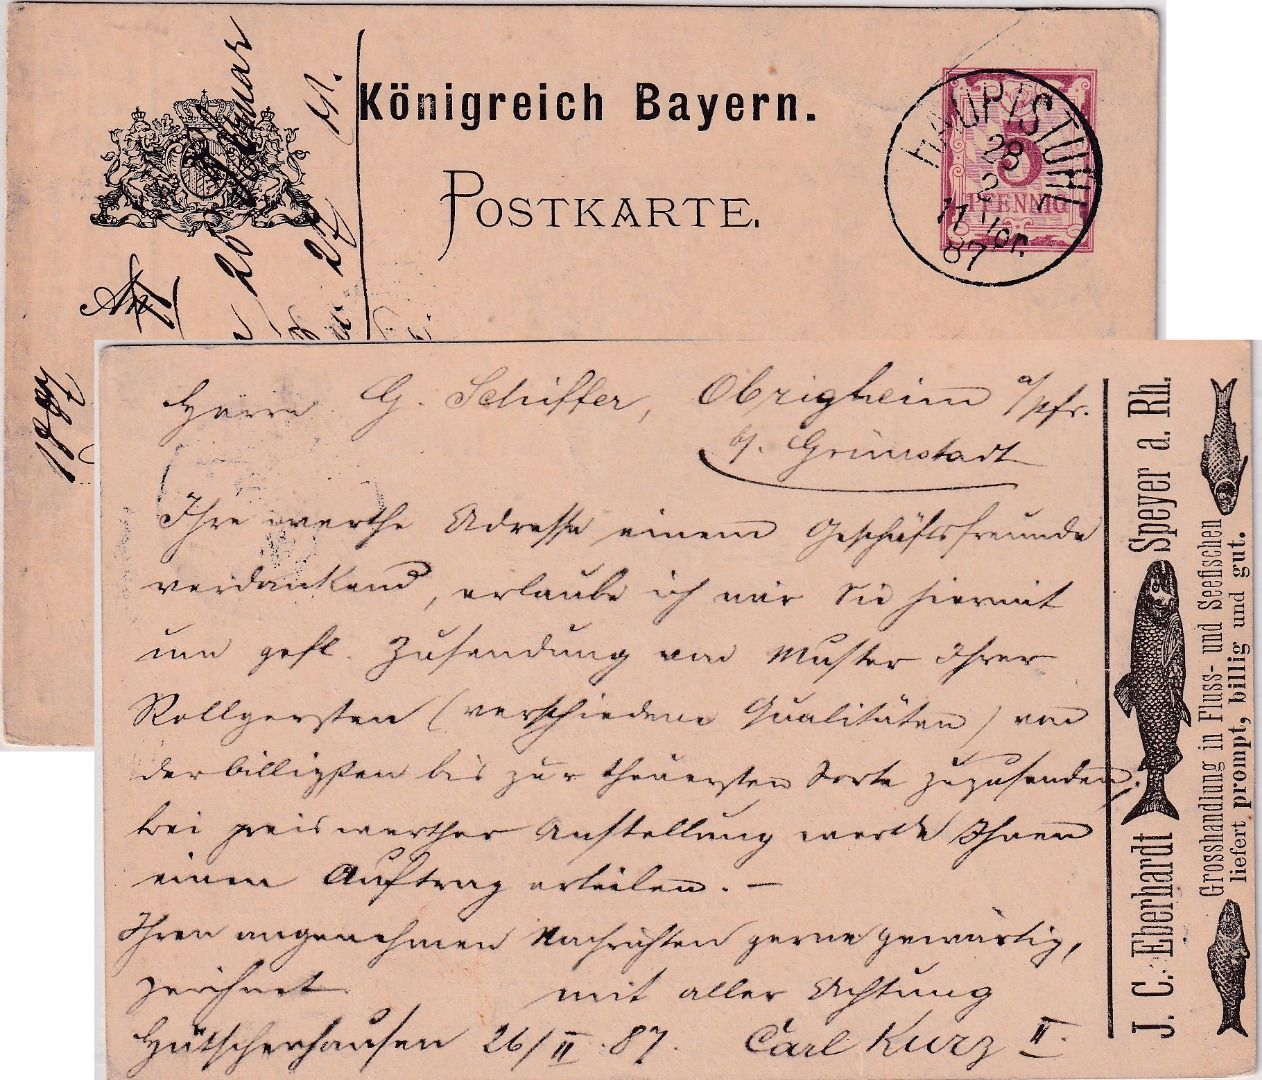 Königreich Bayern.
POSTKARTE.
An
26 Januar
1887
HAUPTSTUHL
28
2
11 Vor.
87
5
PFENNIG
Herrn G. Schiffer, Obrigheim a/Pfr.
b/. Grünstadt
Ihre werthe Adresse einem Geschäftsfreunde
verdankend, erlaube ich mir Sie hiermit
um gefl. Zusendung von Muster Ihrer
Rollgersten (verschiedene Qualitäten) von
der billigsten bis zur theuersten Sorte zuzusenden,
bei preiswerther Anstellung werde Ihnen
einen Auftrag erteilen. –
Ihren angenehmen Nachrichten gerne gewärtig,
zeichnet
mit aller Achtung
Hütschenhausen 26/II. 87. Carl Kurz II.
J. C. Eberhardt Speyer a. Rh.
Grosshandlung in Fluss- und Seefischen
liefert prompt, billig und gut.